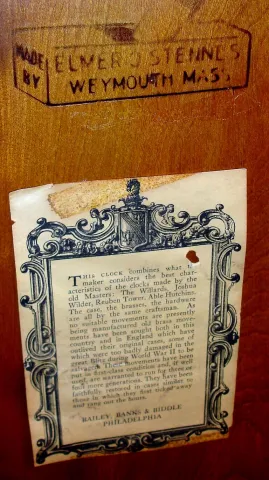 MADE BY
ELMER O STENNES
WEYMOUTH MASS
THIS CLOCK combines what the
maker considers the best char-
acteristics of the clocks made by the
old Masters: The Willards, Joshua
Wilder, Reuben Tower, Able Hutchins.
The case, the brasses, the hardware
are all by the same craftsman. As
no suitable movements are presently
being manufactured old brass move-
ments have been sought both in this
country and in England which have
outlived their original cases, some of
which were too badly damaged in the
great Blitz during World War II to be
salvaged. These movements have been
put in first-class condition and, if well
used, are warranted to run by three or
four more generations. They have been
faithfully restored in cases similar to
those in which they first ticked away
and rang out the hours.
BAILEY, BANKS & BIDDLE
PHILADELPHIA